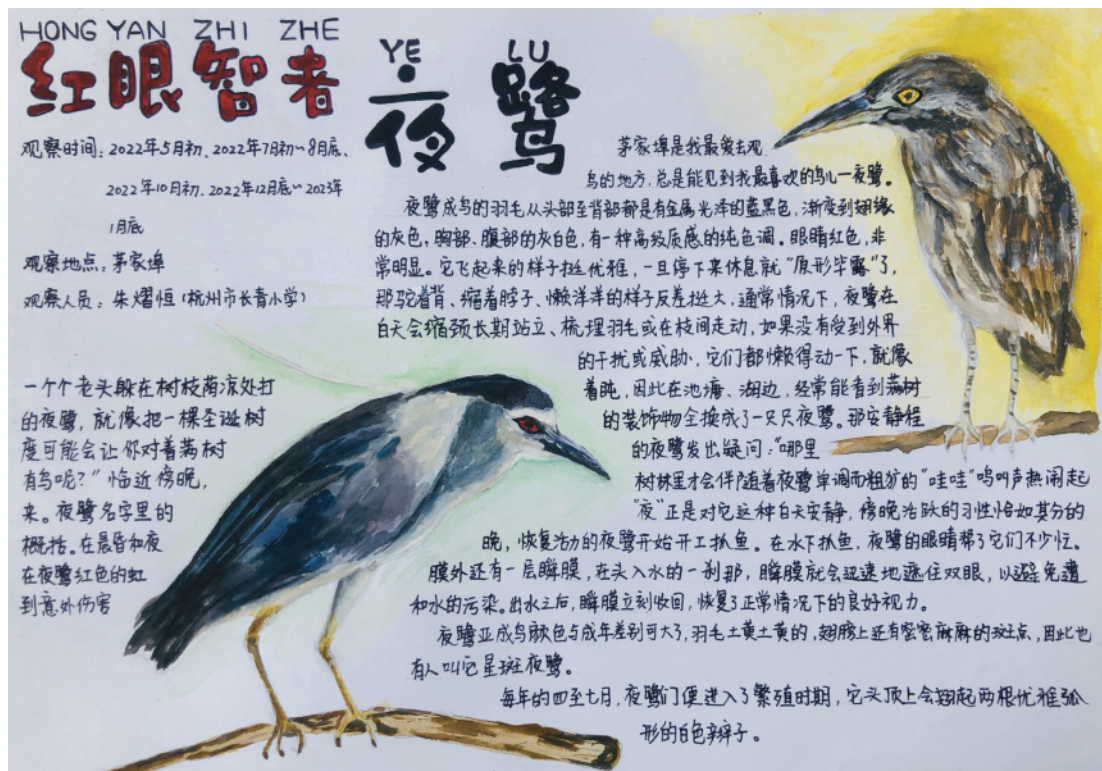 HONG YAN ZHI ZHE
红眼智者
YE LU
夜鹭
观察时间:2022年5月初、2022年7月初~8月底、
2022年10月初、2022年12月底~2023年
1月底
观察地点:茅家埠
观察人员:朱熠恒(杭州市长青小学)
茅家埠是我最爱去观
鸟的地方,总是能见到我最喜欢的鸟儿—夜鹭。
夜鹭成鸟的羽毛从头部至背部都是有金属光泽的蓝黑色,渐变到翅缘
的灰色,胸部、腹部的灰白色,有一种高级质感的纯色调。眼睛红色,非
常明显。它飞起来的样子挺优雅,一旦停下来休息就“原形毕露”了,
那驼着背、缩着脖子、懒洋洋的样子反差挺大,通常情况下,夜鹭在
白天会缩颈长期站立、梳理羽毛或在枝间走动,如果没有受到外界
的干扰或威胁,它们都懒得动一下,就像
一个个老头躲在树枝荫凉处打
着盹,因此在池塘、湖边,经常能看到满树
的夜鹭,就像把一棵圣诞树
的装饰物全换成了一只只夜鹭。那安静程
度可能会让你对着满树
的夜鹭发出疑问:“哪里
有鸟呢?”临近傍晚,
树林里才会伴随着夜鹭单调而粗犷的“哇哇”鸣叫声热闹起
来。夜鹭名字里的
“夜”正是对它这种白天安静,傍晚活跃的习性恰如其分的
概括。在晨昏和夜
晚,恢复活力的夜鹭开始开工抓鱼。在水下抓鱼,夜鹭的眼睛帮了它们不少忙。
在夜鹭红色的虹
膜外还有一层瞬膜,在头入水的一刹那,瞬膜就会迅速地遮住双眼,以避免遭
到意外伤害
和水的污染。出水之后,瞬膜立刻收回,恢复了正常情况下的良好视力。
夜鹭亚成鸟颜色与成年差别可大了,羽毛土黄土黄的,翅膀上还有密密麻麻的斑点,因此也
有人叫它星斑夜鹭。
每年的四至七月,夜鹭们便进入了繁殖时期,它头顶上会翘起两根优雅弧
形的白色辫子。